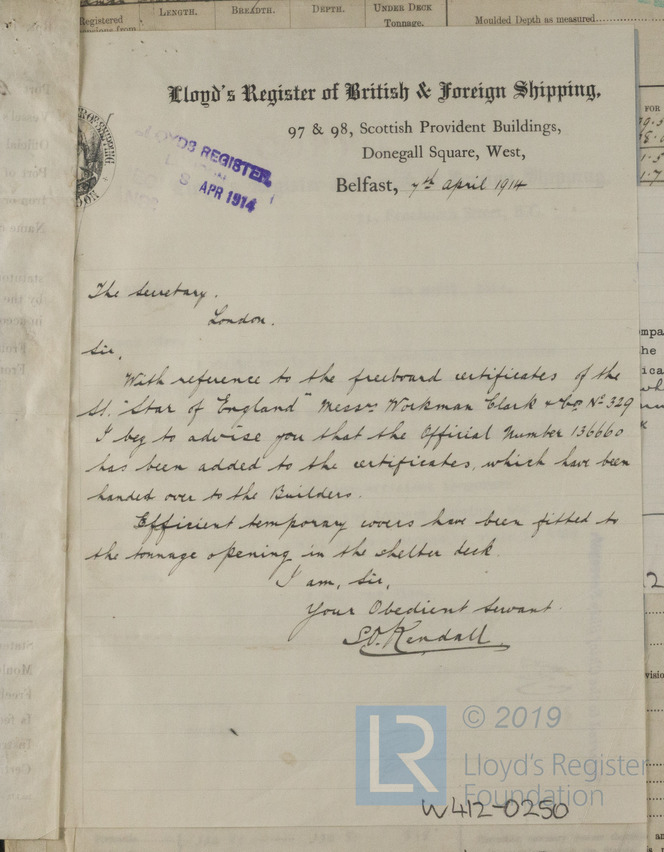 Registered
LENGTH.
BREADTH.
DEPTH.
UNDER DECK
Tonnage.
Moulded Depth as measured
Lloyd's Register of British & Foreign Shipping,
97 & 98, Scottish Provident Buildings,
Donegall Square, West,
Belfast, 7th April 1914
LLOYDS REGISTER
8 APR 1914
The Secretary.
London.
Sir,
With reference to the freeboard certificates of the
SS. "Star of England" Messrs Workman Clark & Co No 329
I beg to advise you that the Official Number 136660
has been added to the certificates, which have been
handed over to the Builders.
Efficient temporary covers have been fitted to
the tonnage opening in the shelter deck.
I am, Sir,
Your Obedient Servant
Kendall
LR
© 2019
Lloyd's Register
Foundation
W412-0250